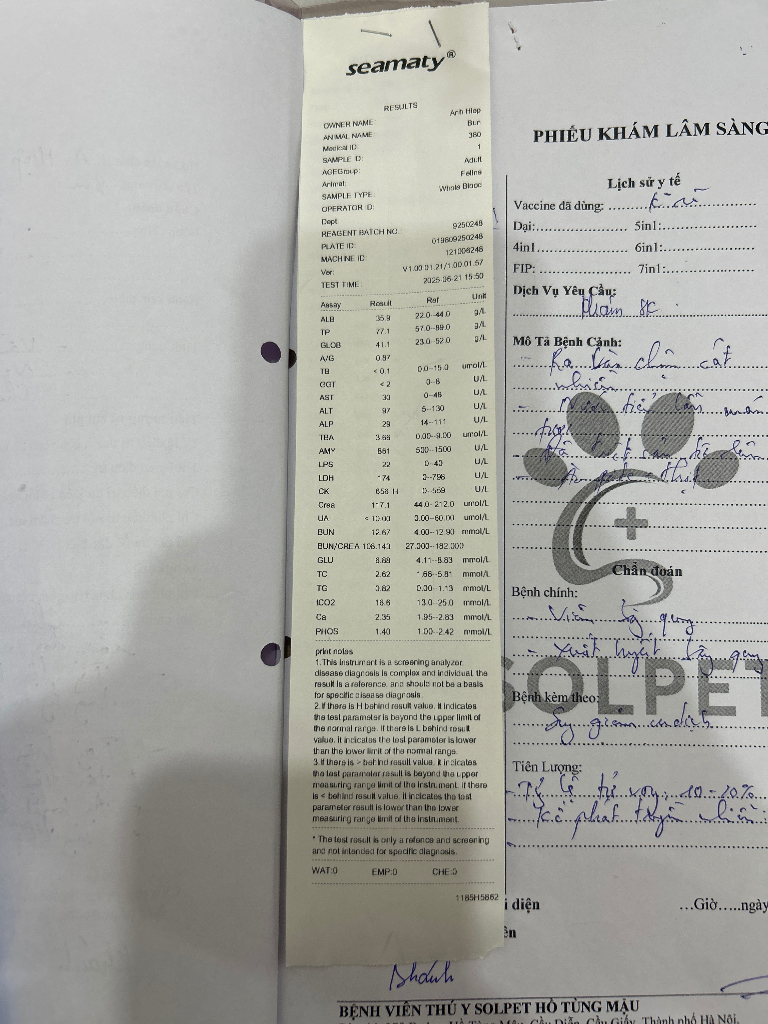 seamaty®
RESULTS
OWNER NAME Anh Hiep
ANIMAL NAME
Medical ID: 380
SAMPLE ID: 1
AGEGroup: Adult
Animal: Feline
SAMPLE TYPE: Whole Blood
OPERATOR ID:
Dept:
REAGENT BATCH NO. 9250248
PLATE ID: 019609250248
MACHINE ID:
Ver: V1.00.01.21/1.00.01.57
TEST TIME: 2025-06-21 15:50
Assay Result Ref Unit
ALB 35.9 22.0--44.0 g/L
TP 77.1 57.0--89.0 g/L
GLOB 41.1 23.0--52.0 g/L
A/G 0.87
TB < 0.1 0.0--15.0 umol/L
GGT < 2 0--8 U/L
AST 30 0--48 U/L
ALT 97 5--130 U/L
ALP 29 14--111 U/L
TBA 3.66 0.00--9.00 umol/L
AMY 500--1500 U/L
LPS 22 0--40 U/L
LDH 174 0--798 U/L
CK 658 H 0--559 U/L
Crea 117.1 44.0--212.0 umol/L
UA < 10.00 0.00--60.00 umol/L
BUN 12.67 4.00--12.90 mmol/L
BUN/CREA 106.143 27.000--182.000
GLU 8.88 4.11--8.83 mmol/L
TC 2.62 1.66--5.81 mmol/L
TG 0.82 0.00--1.13 mmol/L
tCO2 18.6 13.0--25.0 mmol/L
Ca 2.35 1.95--2.83 mmol/L
PHOS 1.40 1.00--2.42 mmol/L
print notes
1.This instrument is a screening analyzer,
disease diagnosis is complex and individual, the
result is a reference, and should not be a basis
for specific disease diagnosis.
2.If there is H behind result value, it indicates
the test parameter is beyond the upper limit of
the normal range. If there is L behind result
value, it indicates the test parameter is lower
than the lower limit of the normal range.
3.If there is > behind result value, it indicates
the test parameter result is beyond the upper
measuring range limit of the instrument. If there
is < behind result value, it indicates the test
parameter result is lower than the lower
measuring range limit of the instrument.
* The test result is only a refence and screening
and not intended for specific diagnosis.
WAT:0 EMP:0 CHE:0
1185H5862
PHIẾU KHÁM LÂM SÀNG
Lịch sử y tế
Vaccine đã dùng:
Dại: 5in1:
4in1 6in1:
FIP: 7in1:
Dịch Vụ Yêu Cầu:
Khám SK
Mô Tả Bệnh Cảnh:
Chẩn đoán
Bệnh chính:
- Viêm bàng quang
- Xuất huyết bàng quang
SOLPET
Bệnh kèm theo:
- Suy giảm miễn dịch
Tiên Lượng:
- Tỷ lệ tử vong: 10-20%
i diện …Giờ…..ngày
ên
BỆNH VIỆN THÚ Y SOLPET HỒ TÙNG MẬU
Cầu Diễn, Cầu Giấy, Thành phố Hà Nội.